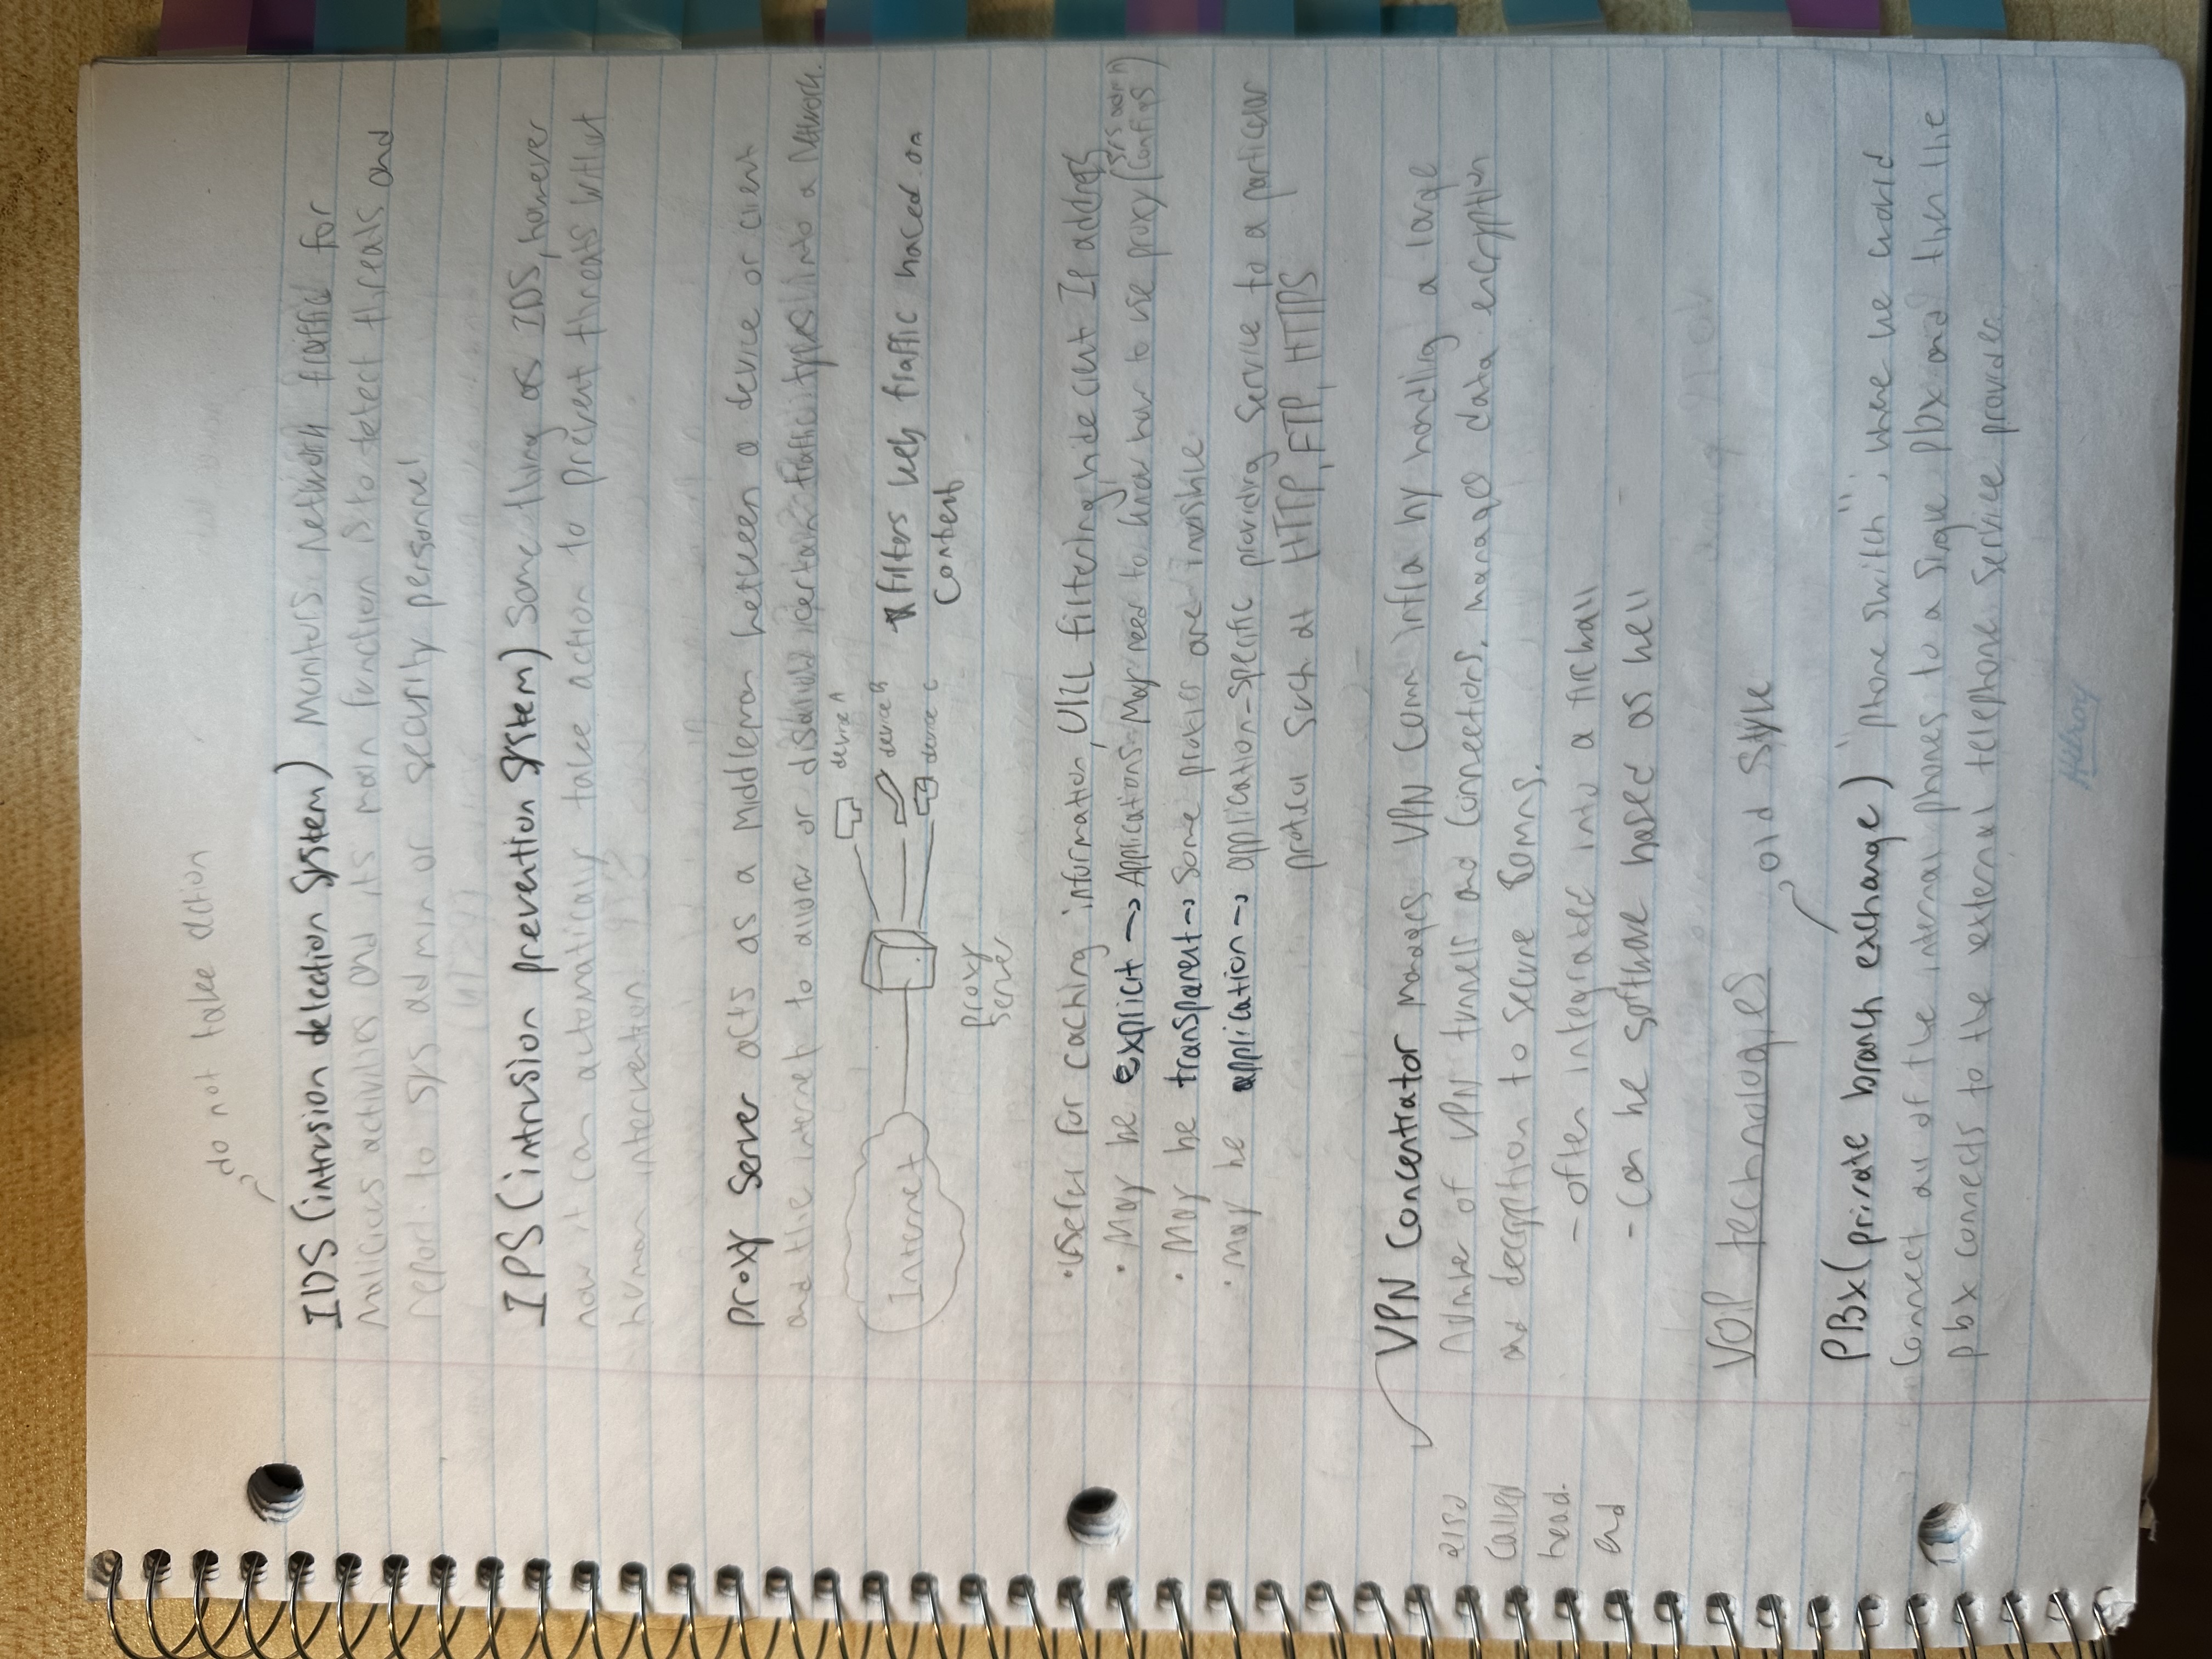 do not take action
IDS (intrusion detection system) Monitors Network traffic for
Malicious activities and its main function is to detect threats and
report to sys admin or security personnel
IPS (intrusion prevention system) Same thing as IDS, however
now it can automaticaly take action to prevent threats without
human intervention.
proxy server acts as a Middleman between a device or client
and the internet to allow or disallow certain traffic types into a Network.
Internet
proxy
server
device A
device B
device C
* filters web traffic based on
content
• Useful for caching information, URL filtering, hide client IP address
• May be explicit → Applications May need to know how to use proxy (sys admin configs)
• May be transparent → Some proxies are invisible
• May be application → application-specific providing service to a particular
protocol such at HTTP, FTP, HTTPS
VPN Concentrator Manages VPN Comm infra by handling a large
Number of VPN tunnels and Connections. manages data encryption
and decryption to secure Comms.
also
called
head-
end
- often integrated into a firewall
- Can be software based as well
VOIP technologies
old style
PBX (private branch exchange) "phone switch", where we would
Connect all of the internal phones to a single Pbx and then the
pbx connects to the external telephone service provider
Hilroy